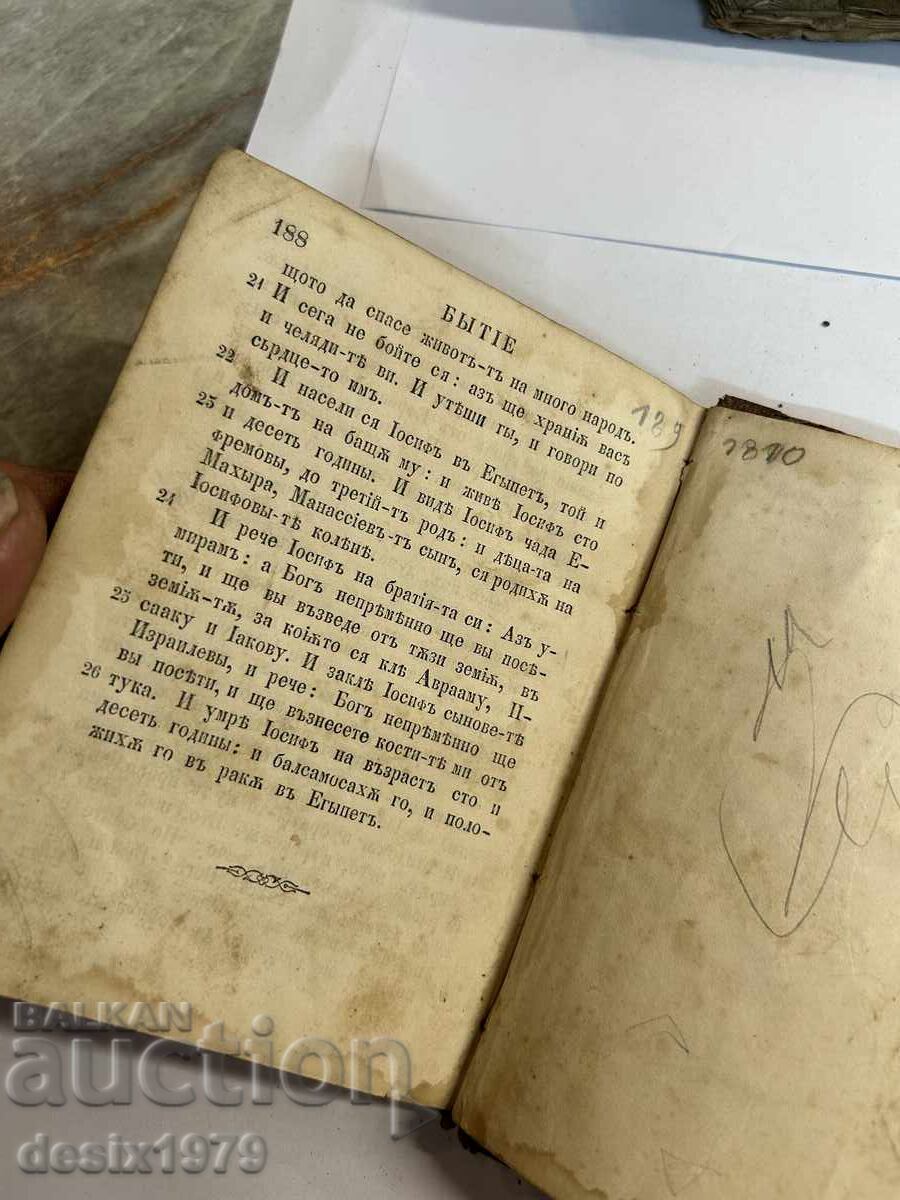 188
БЫТІЕ
щото да спасе животъ-тъ на много народъ.
21 И сега не бойте ся: азъ ще храніѫ васъ
и челяди-тѣ ви. И утѣши гы, и говори по
сърдце-то имъ.
22 И насели ся Іосифъ въ Египетъ, той и
домъ-тъ на бащѫ му: и живѣ Іосифъ сто
23 и десеть годины. И видѣ Іосифъ чада Е-
фремовы, до третій-тъ родъ: и дѣца-та на
Махыра, Манассіевъ-тъ сынъ, ся родихѫ на
Іосифовы-тѣ колѣнѣ.
24 И рече Іосифъ на братія-та си: Азъ у-
мирамъ: а Богъ непрѣмѣнно ще вы посѣ-
ти, и ще вы възведе отъ тѫзи земіѫ, въ
земіѫ-тѫ, за коіѫто ся клѣ Аврааму, И-
25 сааку и Іакову. И заклѣ Іосифъ сынове-тѣ
Израилевы, и рече: Богъ непрѣмѣнно ще
вы посѣти, и ще възнесете кости-тѣ ми отъ
26 тука. И умрѣ Іосифъ на възрастъ сто и
десеть годины: и балсамосахѫ го, и поло-
жихѫ го въ ракѫ въ Египетъ.
189
BALKAN
auction
desix1979